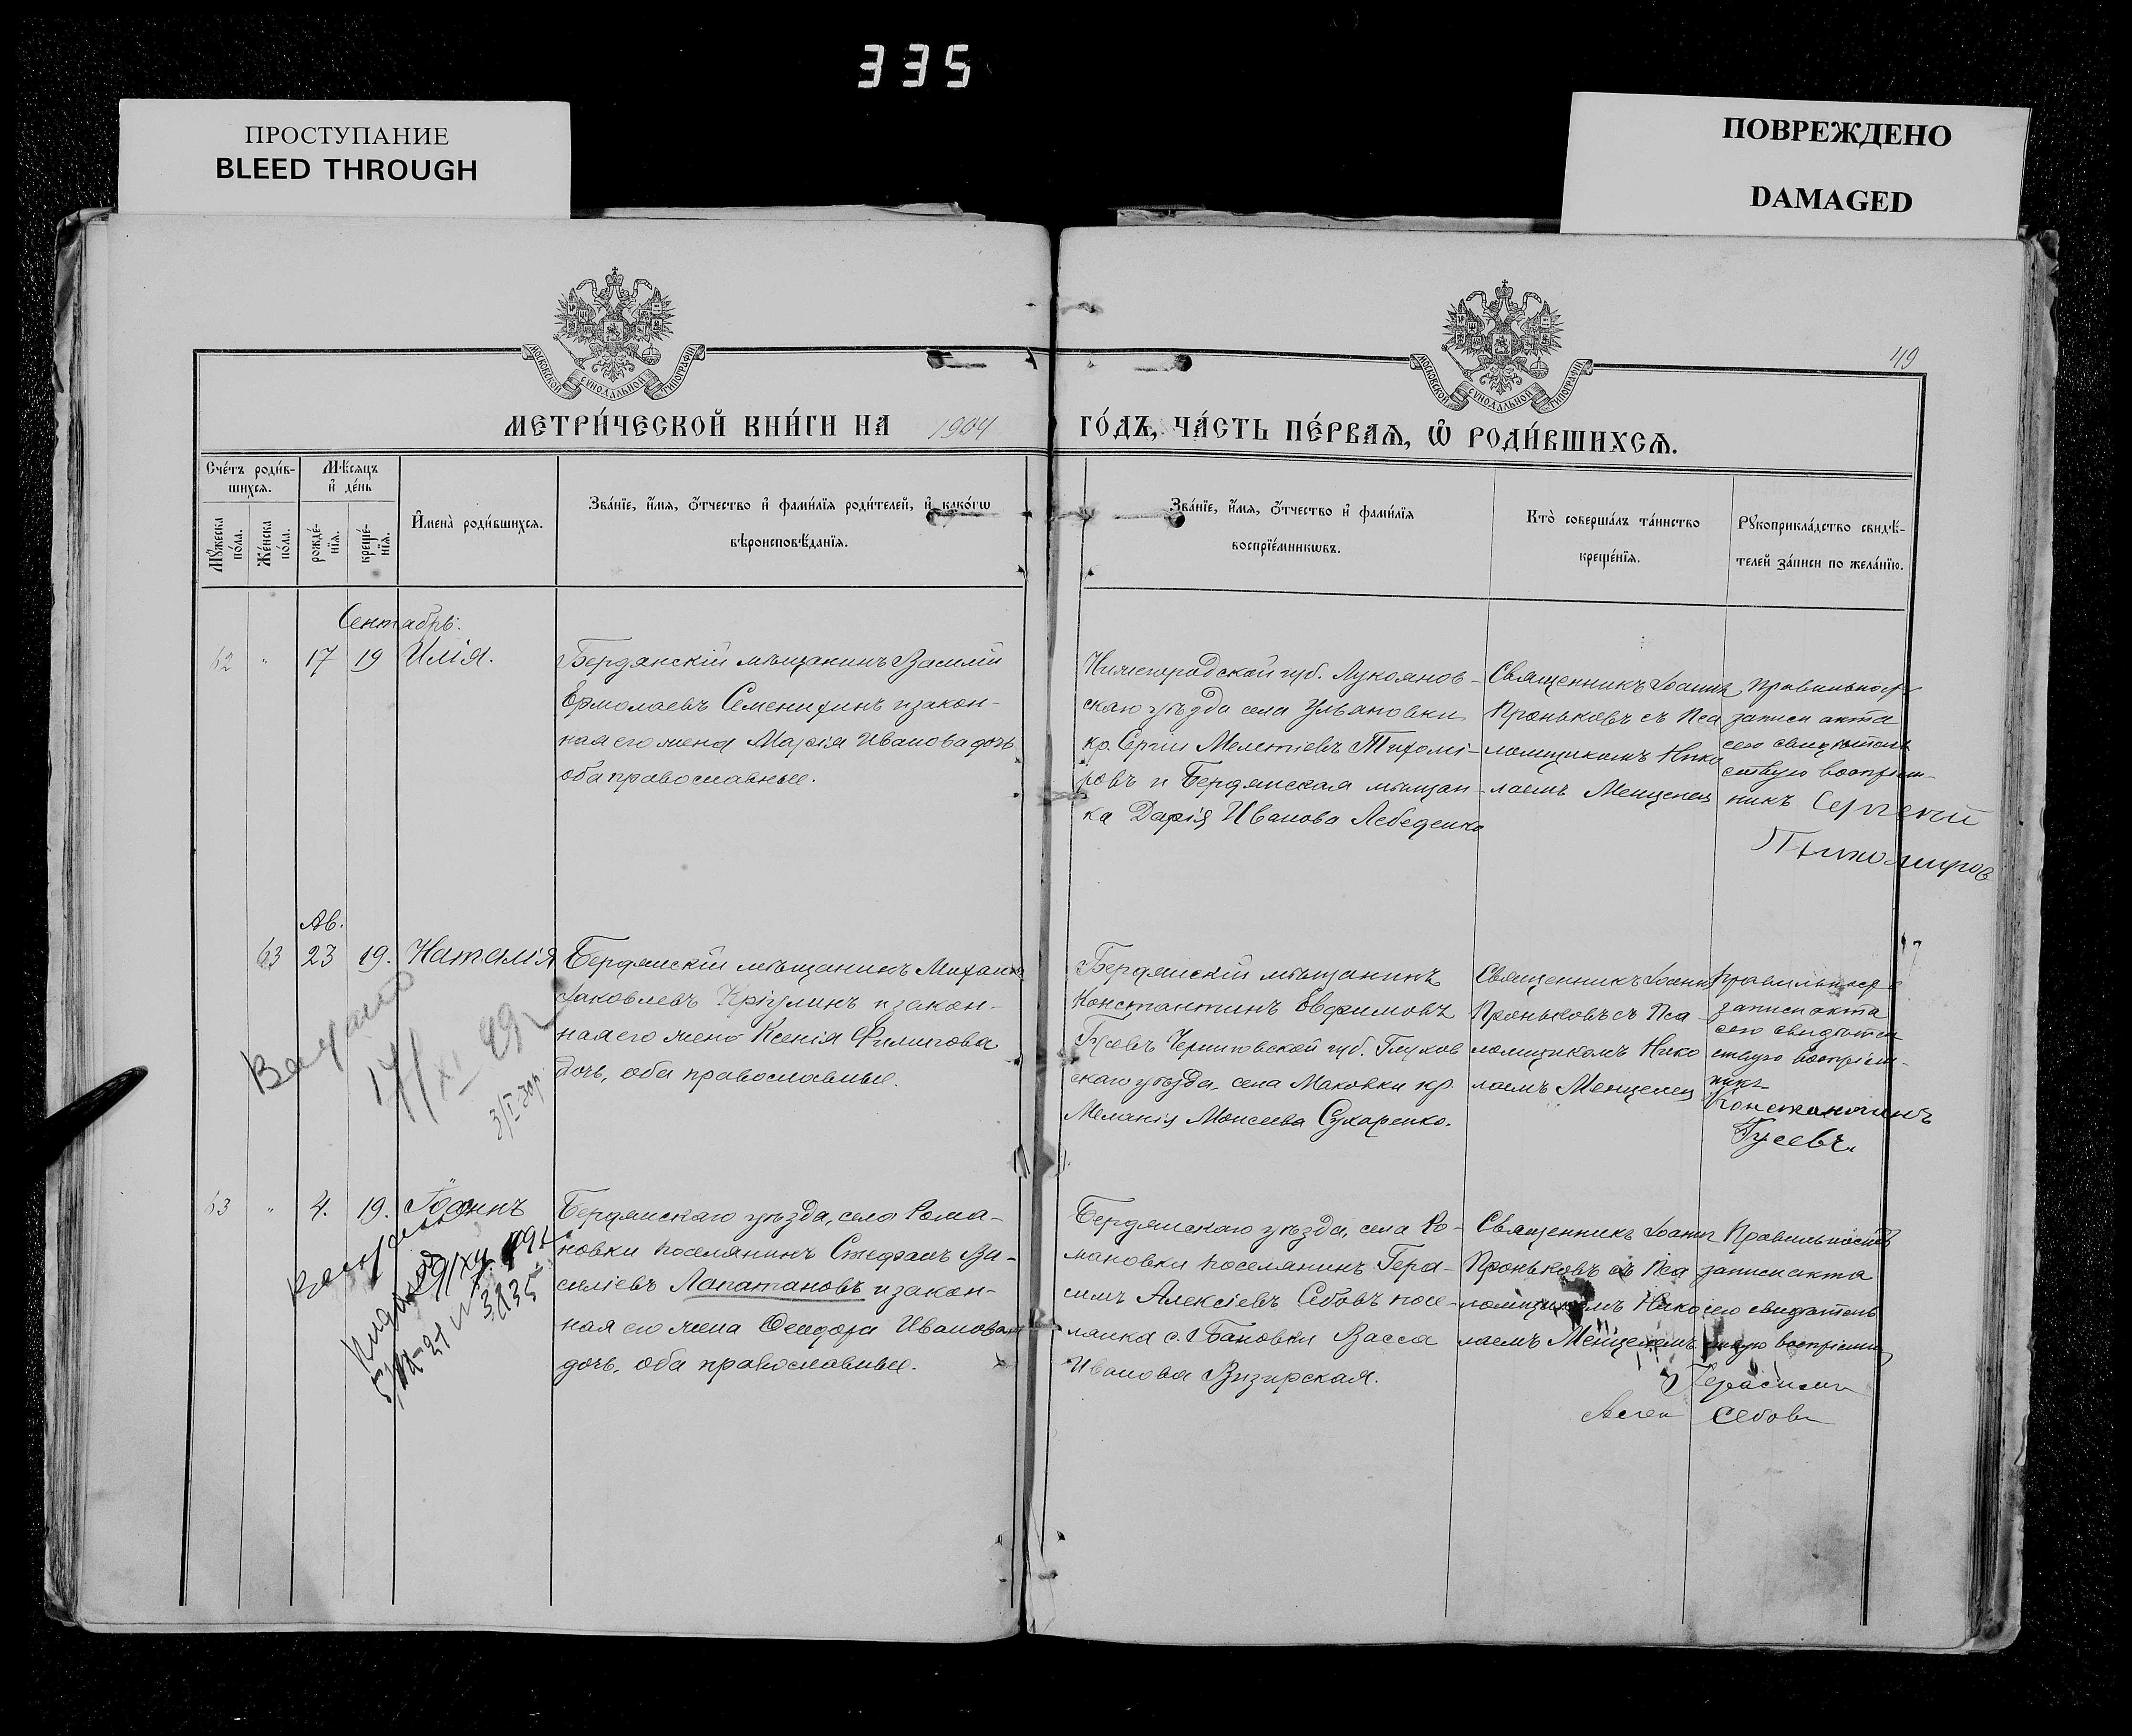 335
ПРОСТУПАНИЕ
BLEED THROUGH
ПОВРЕЖДЕНО
DAMAGED
МОСКОВСКОЙ СУНОДАЛЬНОЙ ТИПОГРАФІИ
МОСКОВСКОЙ СУНОДАЛЬНОЙ ТИПОГРАФІИ
49
МЕТРИ́ЧЕСКОЙ КНИ́ГИ НА 1904 ГО́ДЪ, ЧА́СТЬ ПЕ́РВАѦ, Ѽ РОДИ́ВШИХСѦ.
Сче́тъ роди́в-
шихсѧ.
Мꙋ́жеска по́ла.
Же́нска по́ла.
Мѣ́сѧцъ и҆ де́нь
рожде́-
нїѧ.
креще́-
нїѧ.
И҆мена̀ роди́вшихсѧ.
Зва́нїе, и҆́мѧ, ѻ҆́тчество и҆ фами́лїѧ роди́телей, и҆ како́гѡ
вѣроисповѣ́данїѧ.
Зва́нїе, и҆́мѧ, ѻ҆́тчество и҆ фами́лїѧ
воспрїе́мникѡвъ.
Кто̀ соверша́лъ та́инство
креще́нїѧ.
Рꙋкоприкла́дство свидѣ́-
телей за́писи по жела́нїю.
Сентябрь.
62 " 17 19 Илія.
Бердянскій мѣщанинъ Василій
Ермолаевъ Семенихинъ и закон-
ная его жена Марія Иванова дочь
оба православные.
Нижегородской губ. Лукоянов-
скаго уѣзда села Ульяновки
кр. Сергій Мелетіевъ Тихомі-
ровъ и Бердянская мѣщан-
ка Дарія Иванова Лебеденко
Священникъ Іоаннъ
Проньковъ съ Пса
ломщикомъ Нико
лаемъ Менцелец
Правильност
записи акта
сего свидѣтель
ствую воспріем-
никъ Сергей
Тихомиров
Ав.
63 23 19. Наталія
Бердянскій мѣщанинъ Михаилъ
Іаковлевъ Крігулинъ и закон-
ная его жена Ксенія Филипова
дочь, оба православные.
Бердянскій мѣщанинъ
Константинъ Евфимовъ
Гусевъ Черниговской губ. Глухов
скаго уѣзда, села Маковки кр.
Меланія Моисеева Сухаренко.
Священникъ Іоаннъ
Проньковъ съ Пса
ломщикомъ Нико
лаемъ Менцелец
Правильност
записи акта
сего свидѣтель
ствую воспріем-
никъ
Константинъ
Гусевъ.
17/XI 49
63 " 4. 19. Іоаннъ
Бердянскаго уѣзда, села Рома-
новки поселянинъ Стефанъ Ва-
силіевъ Лапатановъ и закон-
ная его жена Ѳеодора Иванова
дочь, оба православные.
Бердянскаго уѣзда, села Ро-
мановки поселянинъ Гера-
симъ Алексіевъ Себовъ посе-
лянка с. Бановки Васса
Иванова Визирская.
Священникъ Іоаннъ
Проньковъ съ Пса
ломщикомъ Нико
лаемъ Менцелемъ
Правильность
записи акта
сего свидѣтель
ствую воспріемн
Герасимъ
Себовъ